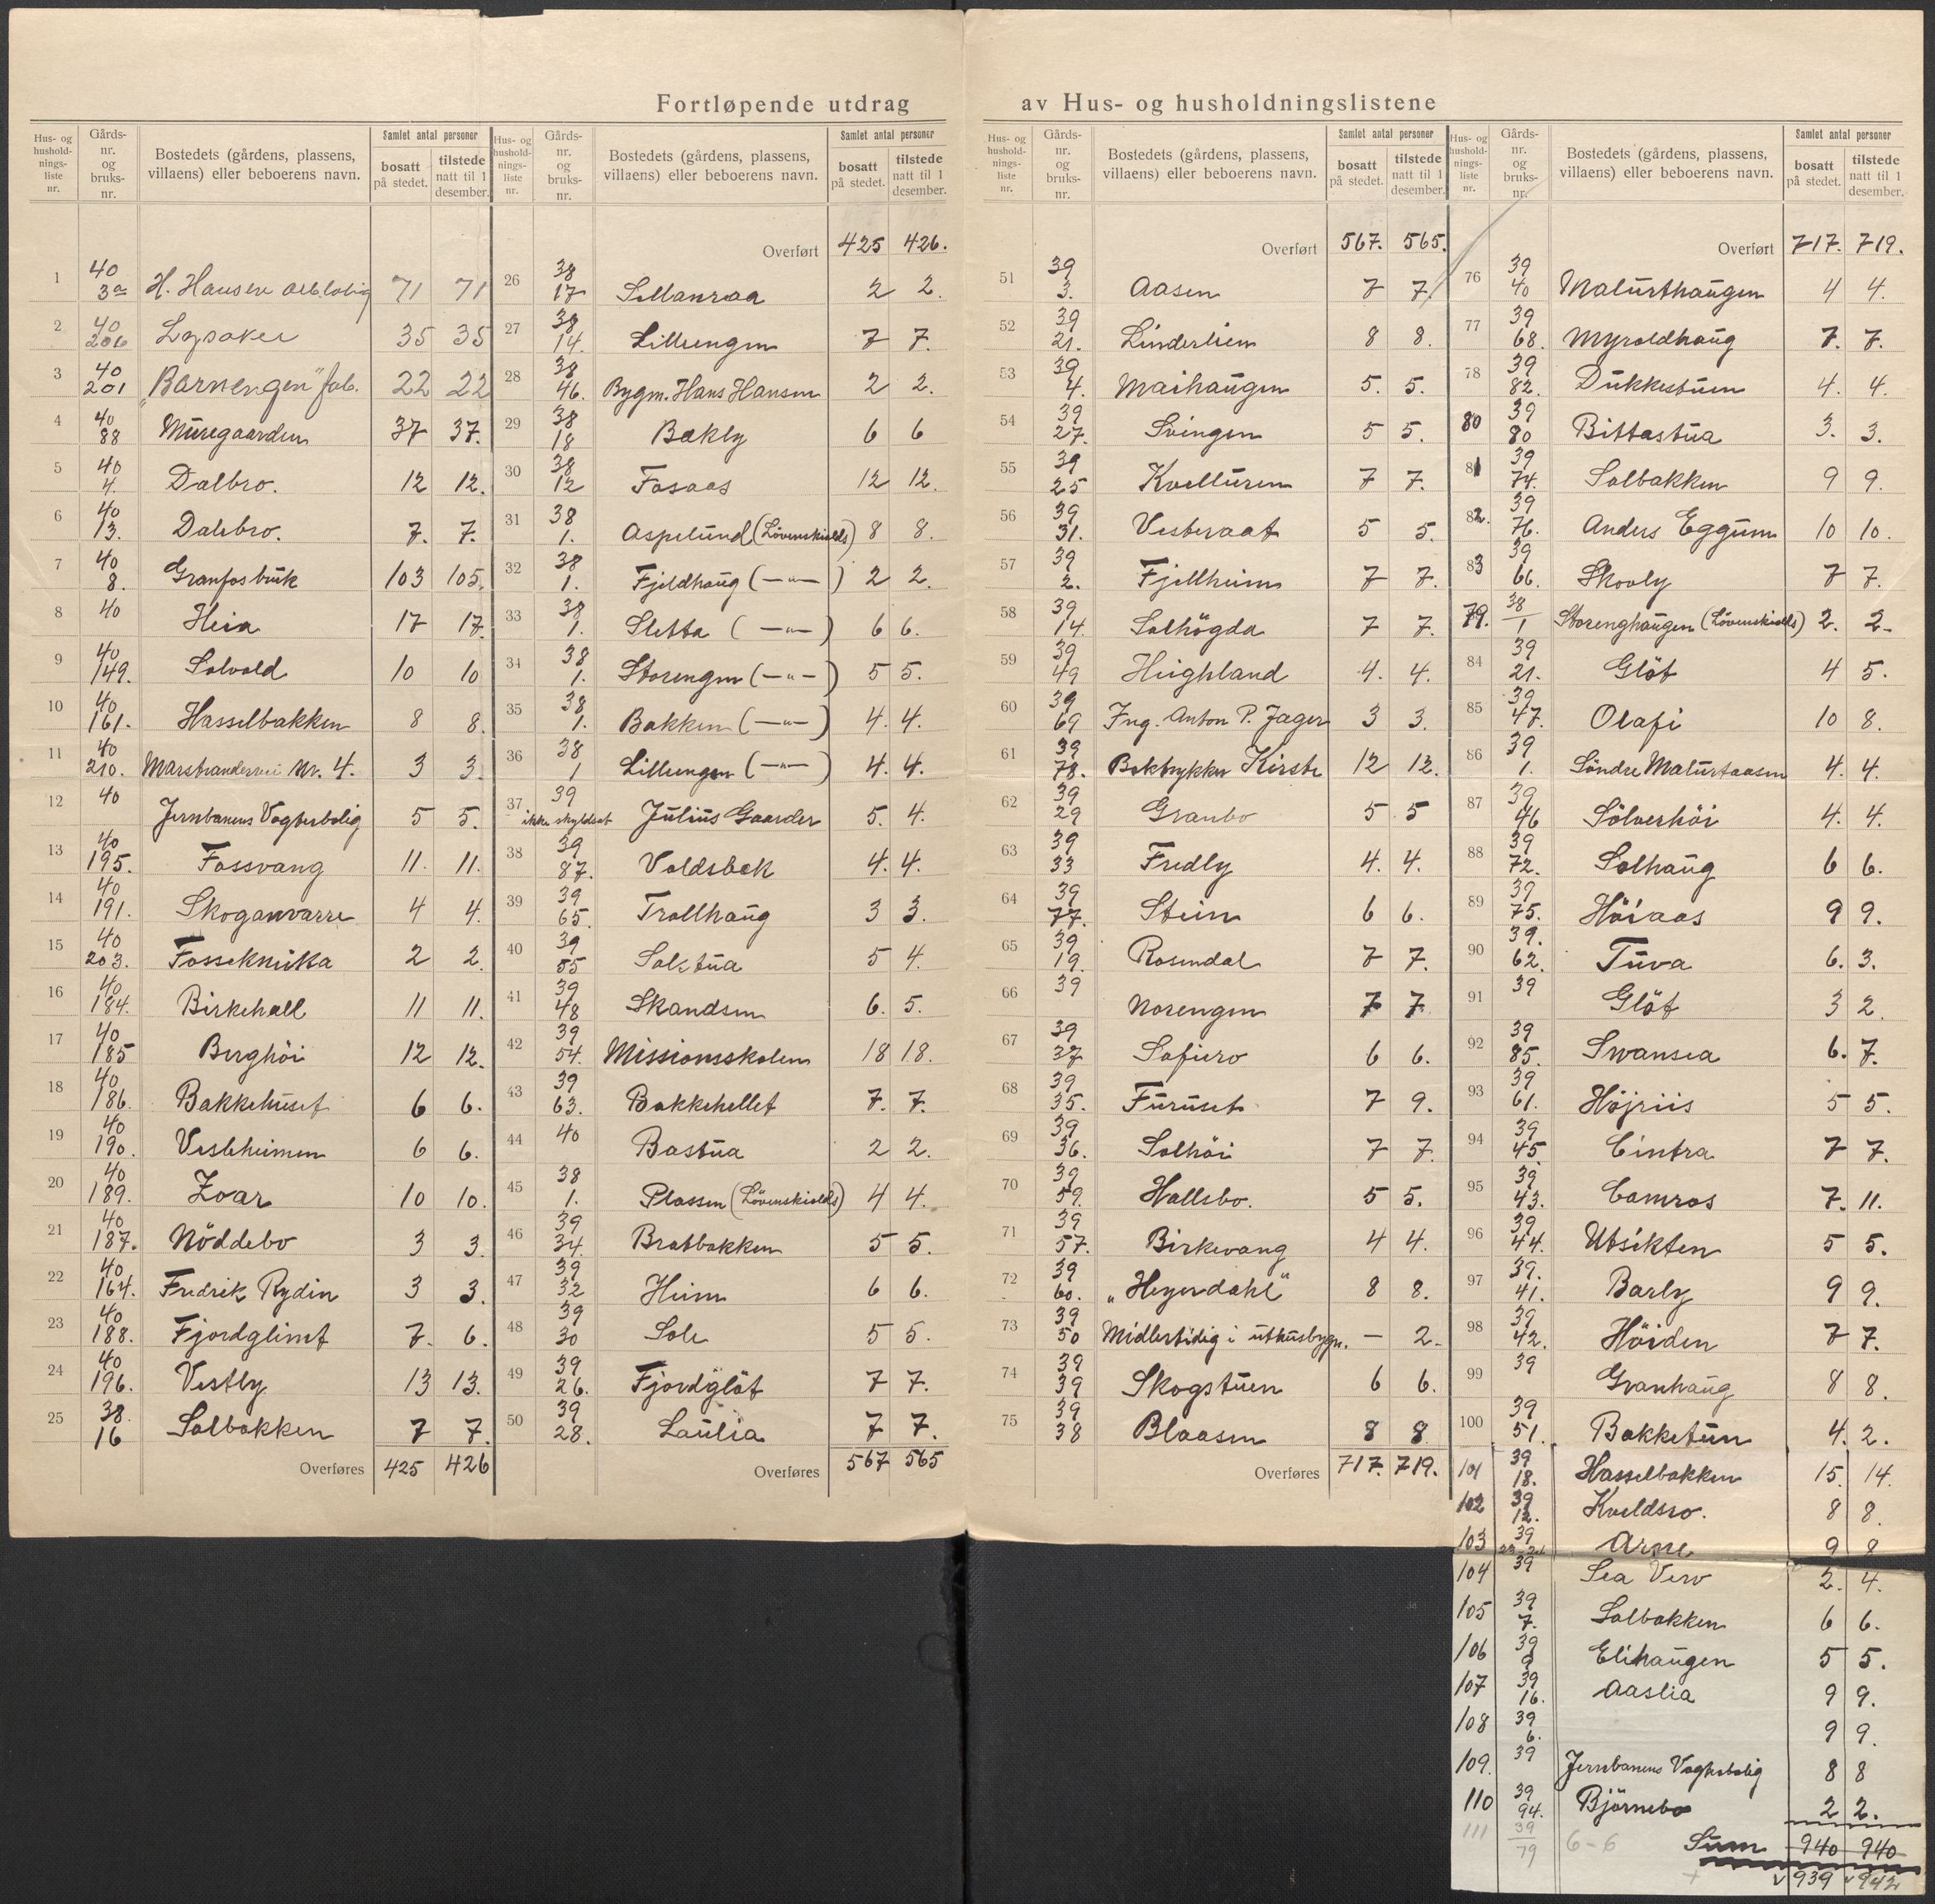 Fortløpende utdrag av Hus- og husholdningslistene
Hus- og hushold-nings-liste nr. | Gårds-nr. og bruks-nr. | Bostedets (gårdens, plassens, villaens) eller beboerens navn. | Samlet antal personer | bosatt på stedet. | tilstede natt til 1 desember.
1 40 3a H. Hansen 71 71
2 40 206 Lysaker 35 35
3 40 201 "Barnengen" fab. 22 22
4 40 88 Muregaarden 37 37.
5 40 4. Dalbro. 12 12.
6 40 13. Dalsbro. 7. 7.
7 40 8. Granfos bruk 103 105.
8 40 Heia 17 17.
9 40 149. Solvold 10 10
10 40 161. Hasselbakken 8 8.
11 40 210. Marstrandervei Nr. 4. 3 3.
12 40 Jernbanens Vogterbolig 5 5.
13 40 195. Fossvang 11. 11.
14 40 191. Skoganvarre 4 4.
15 40 203. Fosseknuka 2 2.
16 40 184. Birkehall 11 11.
17 40 185 Berghöi 12 12.
18 40 186. Bakkehuset 6 6.
19 40 190. Vesleheimen 6 6.
20 40 189. Zoar 10 10.
21 40 187. Nöddebo 3 3.
22 40 164. Fredrik Rydin 3 3.
23 40 188. Fjordglimt 7. 6.
24 40 196. Vestby 13 13.
25 38. 16 Solbakken 7 7.
Overføres 425 426
Hus- og hushold-nings-liste nr. | Gårds-nr. og bruks-nr. | Bostedets (gårdens, plassens, villaens) eller beboerens navn. | Samlet antal personer | bosatt på stedet. | tilstede natt til 1 desember.
Overført 425 426.
26 38 17 Sellanraa 2 2.
27 38 14. Lillengen 7 7.
28 38 46. Bygm. Hans Hansen 2 2.
29 38 18 Bækly 6 6
30 38 12 Fosaas 12 12.
31 38 1. Aspelund (Lövenskiolds) 8 8.
32 38 1. Fjeldhaug (—"—) 2 2.
33 38 1. Sletta (—"—) 6 6.
34 38 1. Storengen (—"—) 5 5.
35 38 1. Bakken (—"—) 4. 4.
36 38 1 Lillengen (—"—) 4. 4.
37 39 ikke skyldsat Julius Gaarder 5. 4.
38 39 87. Voldsbek 4. 4.
39 39 65. Trollhaug 3 3.
40 39 55 Solstua 5 4.
41 39 48 Skandsen 6. 5.
42 39 54. Missionsskolen 18 18.
43 39 63. Bakkehellet 7. 7.
44 40 Bastua 2 2.
45 38 1. Plassen (Lövenskiolds) 4 4.
46 39 34. Bratbakken 5 5.
47 39 32 Heim 6 6.
48 39 30 Sole 5 5.
49 39 26. Fjordglöt 7 7.
50 39 28. Laulia 7 7.
Overføres 567 565
Hus- og hushold-nings-liste nr. | Gårds-nr. og bruks-nr. | Bostedets (gårdens, plassens, villaens) eller beboerens navn. | Samlet antal personer | bosatt på stedet. | tilstede natt til 1 desember.
Overført 567. 565.
51 39 3. Aasen 7 7.
52 39 21. Linderlien 8 8.
53 39 4. Maihaugen 5. 5.
54 39 27. Svingen 5 5.
55 39 25 Kvelturen 7 7.
56 39 31. Vesteraat 5 5.
57 39 2. Fjellheim 7 7.
58 39 14. Solhögda 7 7.
59 39 49 Heighland 4. 4.
60 39 69 Ing. Anton P. Jager 3 3.
61 39 78. Boktrykker Kirste 12 12.
62 39 29 Granbo 5 5
63 39 33 Fredly 4. 4.
64 39 77. Stein 6 6.
65 39 19. Rosendal 7 7.
66 39 Norengen 7 7.
67 39 37 Sofiero 6 6.
68 39 35. Furuset 7 9.
69 39 36. Solhöi 7 7.
70 39 59. Hallsbo. 5 5.
71 39 57. Birkevang 4 4.
72 39 60. „Heyerdahl" 8 8.
73 39 50 Midlertidig i uthusbygn. — 2.
74 39 39 Skogstuen 6 6.
75 39 38 Blaasen 8 8
Overføres 717. 719.
Hus- og hushold-nings-liste nr. | Gårds-nr. og bruks-nr. | Bostedets (gårdens, plassens, villaens) eller beboerens navn. | Samlet antal personer | bosatt på stedet. | tilstede natt til 1 desember.
Overført 717. 719.
76 39 40 Maturthaugen 4 4.
77 39 68. Myroldhaug 7. 7.
78 39 82. Dukkestuen 4. 4.
80 39 80 Bittastua 3. 3.
81 39 74. Solbakken 9 9.
82. 39 76. Anders Eggum 10 10.
83 39 66. Skovly 7 7.
79. 38 1 Storenghaugen (Lövenskiolds) 2. 2-
84 39 21. Glöt 4 5.
85 39. 47. Olafi 10 8.
86 39 1. Söndre Maturtaasen 4. 4.
87 39 46 Sölverhöi 4. 4.
88 39 72. Solhaug 6 6.
89 39 75. Höiaas 9 9.
90 39. 62. Tuva 6. 3.
91 39 Glöt 3 2.
92 39 85. Swansea 6. 7.
93 39 61. Höjriis 5 5.
94 39 45 Cintra 7 7.
95 39 43. Camros 7. 11.
96 39 44. Utsikten 5 5.
97 39. 41. Barly 9 9.
98 39 42. Höiden 7 7.
99 39 Granhaug 8 8.
100 39 51. Bakketun 4. 2.
101 39 18. Hasselbakken 15. 14.
102 39 12. Kveldsro. 8 8.
103 39 Arne 9 8
104 39 Sea Vero 2. 4.
105 39 7. Solbakken 6 6.
106 39 9 Elihaugen 5 5.
107 39 16. Aaslia 9 9.
108 39 6. 9 9.
109. 39 Jernbanens Vogterbolig 8 8
110 39 94. Björnebo 2 2.
111 39 79 6-6
Sum 940 940
939 942